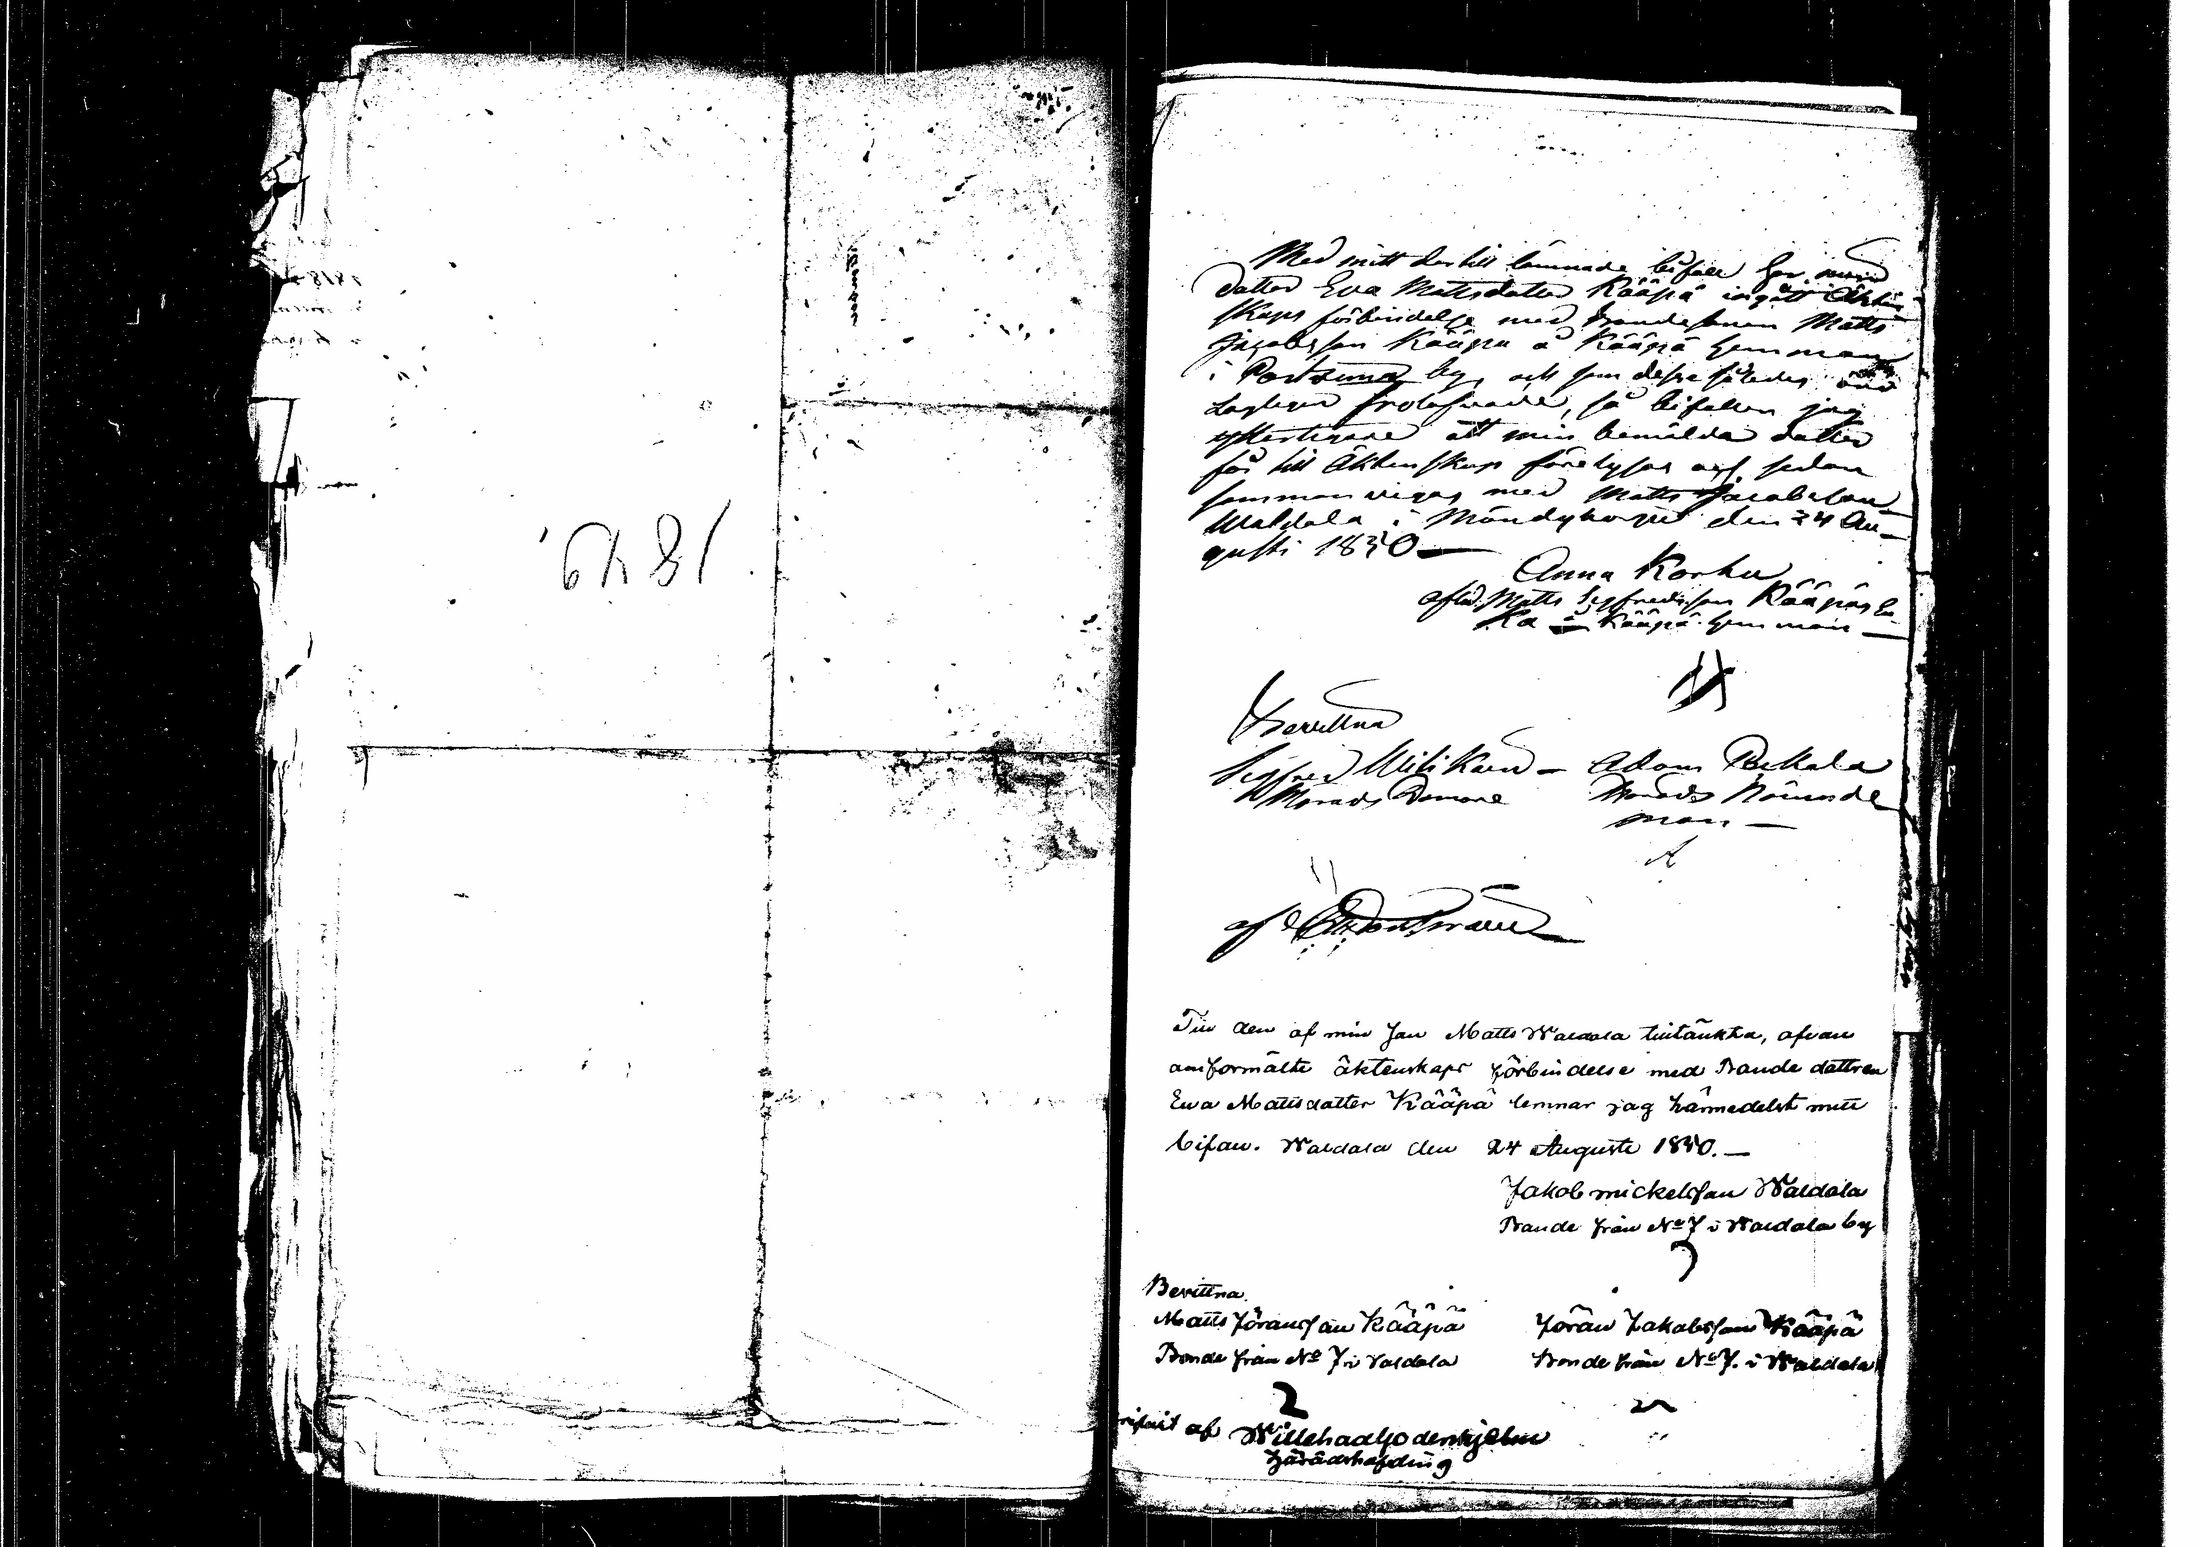 1849.
Med mitt der till lämnade bifall har min
dotter Eva Mattsdotter Kääpä ingått Äkten
skaps förbindelse med bondesonen Matts
Jacobsson Kääpä å Kääpä hemman
i Portsima by, och som desse således
lagligen trolofvade, så bifaller jag
ytterligare att min bemälda dotter
får till Äktenskap förelysas och sedan
sammanvigas med Matts Jacobsson
Waldala i Mändyharju den 24 Au-
gusti 1850
Anna Korhu
afled. Matts Sigfredsson Kääpäs En-
ka å Kääpä hemman
Bevittna
Sigfred Adam Pekala
Härads Domare Härads Nämnde
man
af
Till den af min Son Matts Waldala tilltänkta, ofvan
omförmälte äktenskaps förbindelse med Bonde dottren
Ewa Mattsdotter Kääpä lemnar jag härmedelst mitt
bifall. Waldala den 24 Augusti 1850.
Jakob Mickelsson Waldala
Bonde från No 7 i Waldala by
Bevittna
Matts Jöransson Kääpä Jöran Jakobsson Kääpä
Bonde från No 7 i Valdala Bonde från No 7. i Waldala
af Willehad Godenhjelm
Häradshöfding